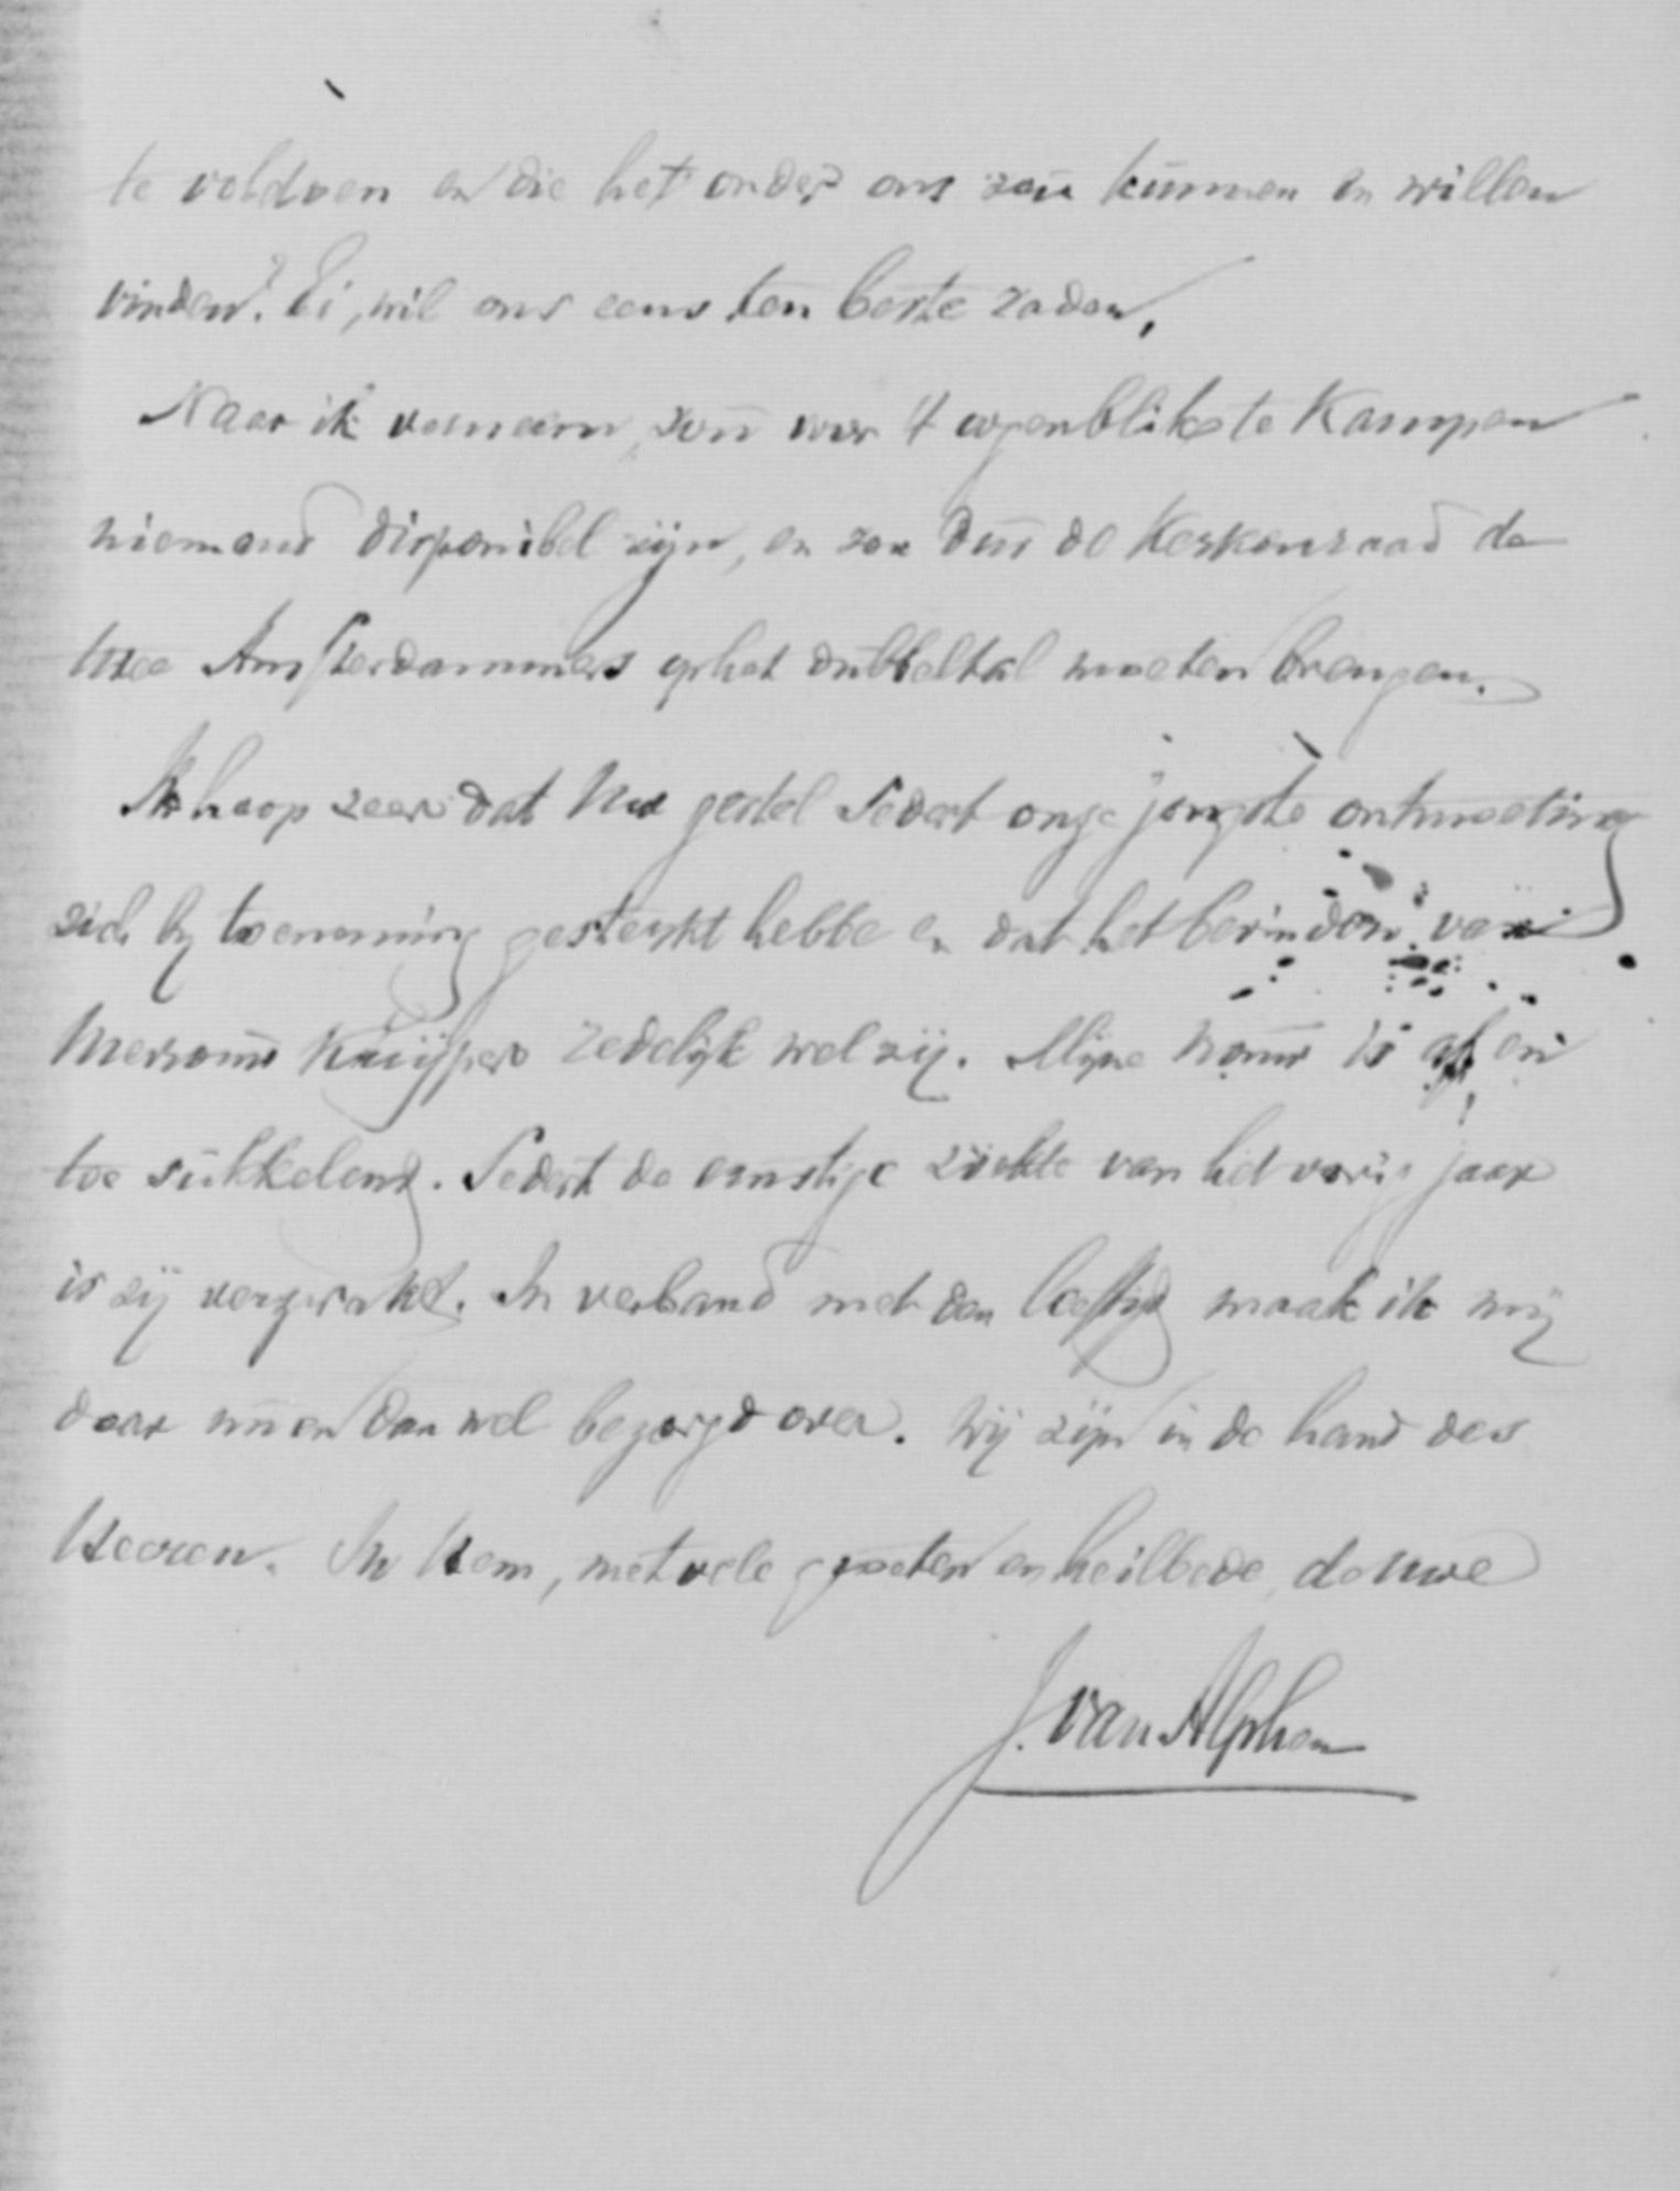 te voldoen en die het onder ons zou kunnen en willen
vinden? Ei, wil ons eens ten beste raden.
Naar ik verneem, zou voor 't oogenblik te Kampen
niemand disponibel zijn, en zou dus de Kerkenraad de
twee Amsterdammers op het dubbeltal moeten brengen.
Ik hoop zeer dat Uw gestel sedert onze jongste ontmoeting
zich bij toeneming gesterkt hebbe en dat het bevinden van
Mevrouw Kuijper redelijk wel zij. Mijne vrouw is af en
toe sukkelend. Sedert de ernstige ziekte van het vorig jaar
is zij verzwakt. In verband met den leeftijd maak ik mij
daar nu en dan wel bezorgd over. Wij zijn in de hand des
Heeren. In Hem, met vele groeten en heilbede, de Uwe
J. van Alphen